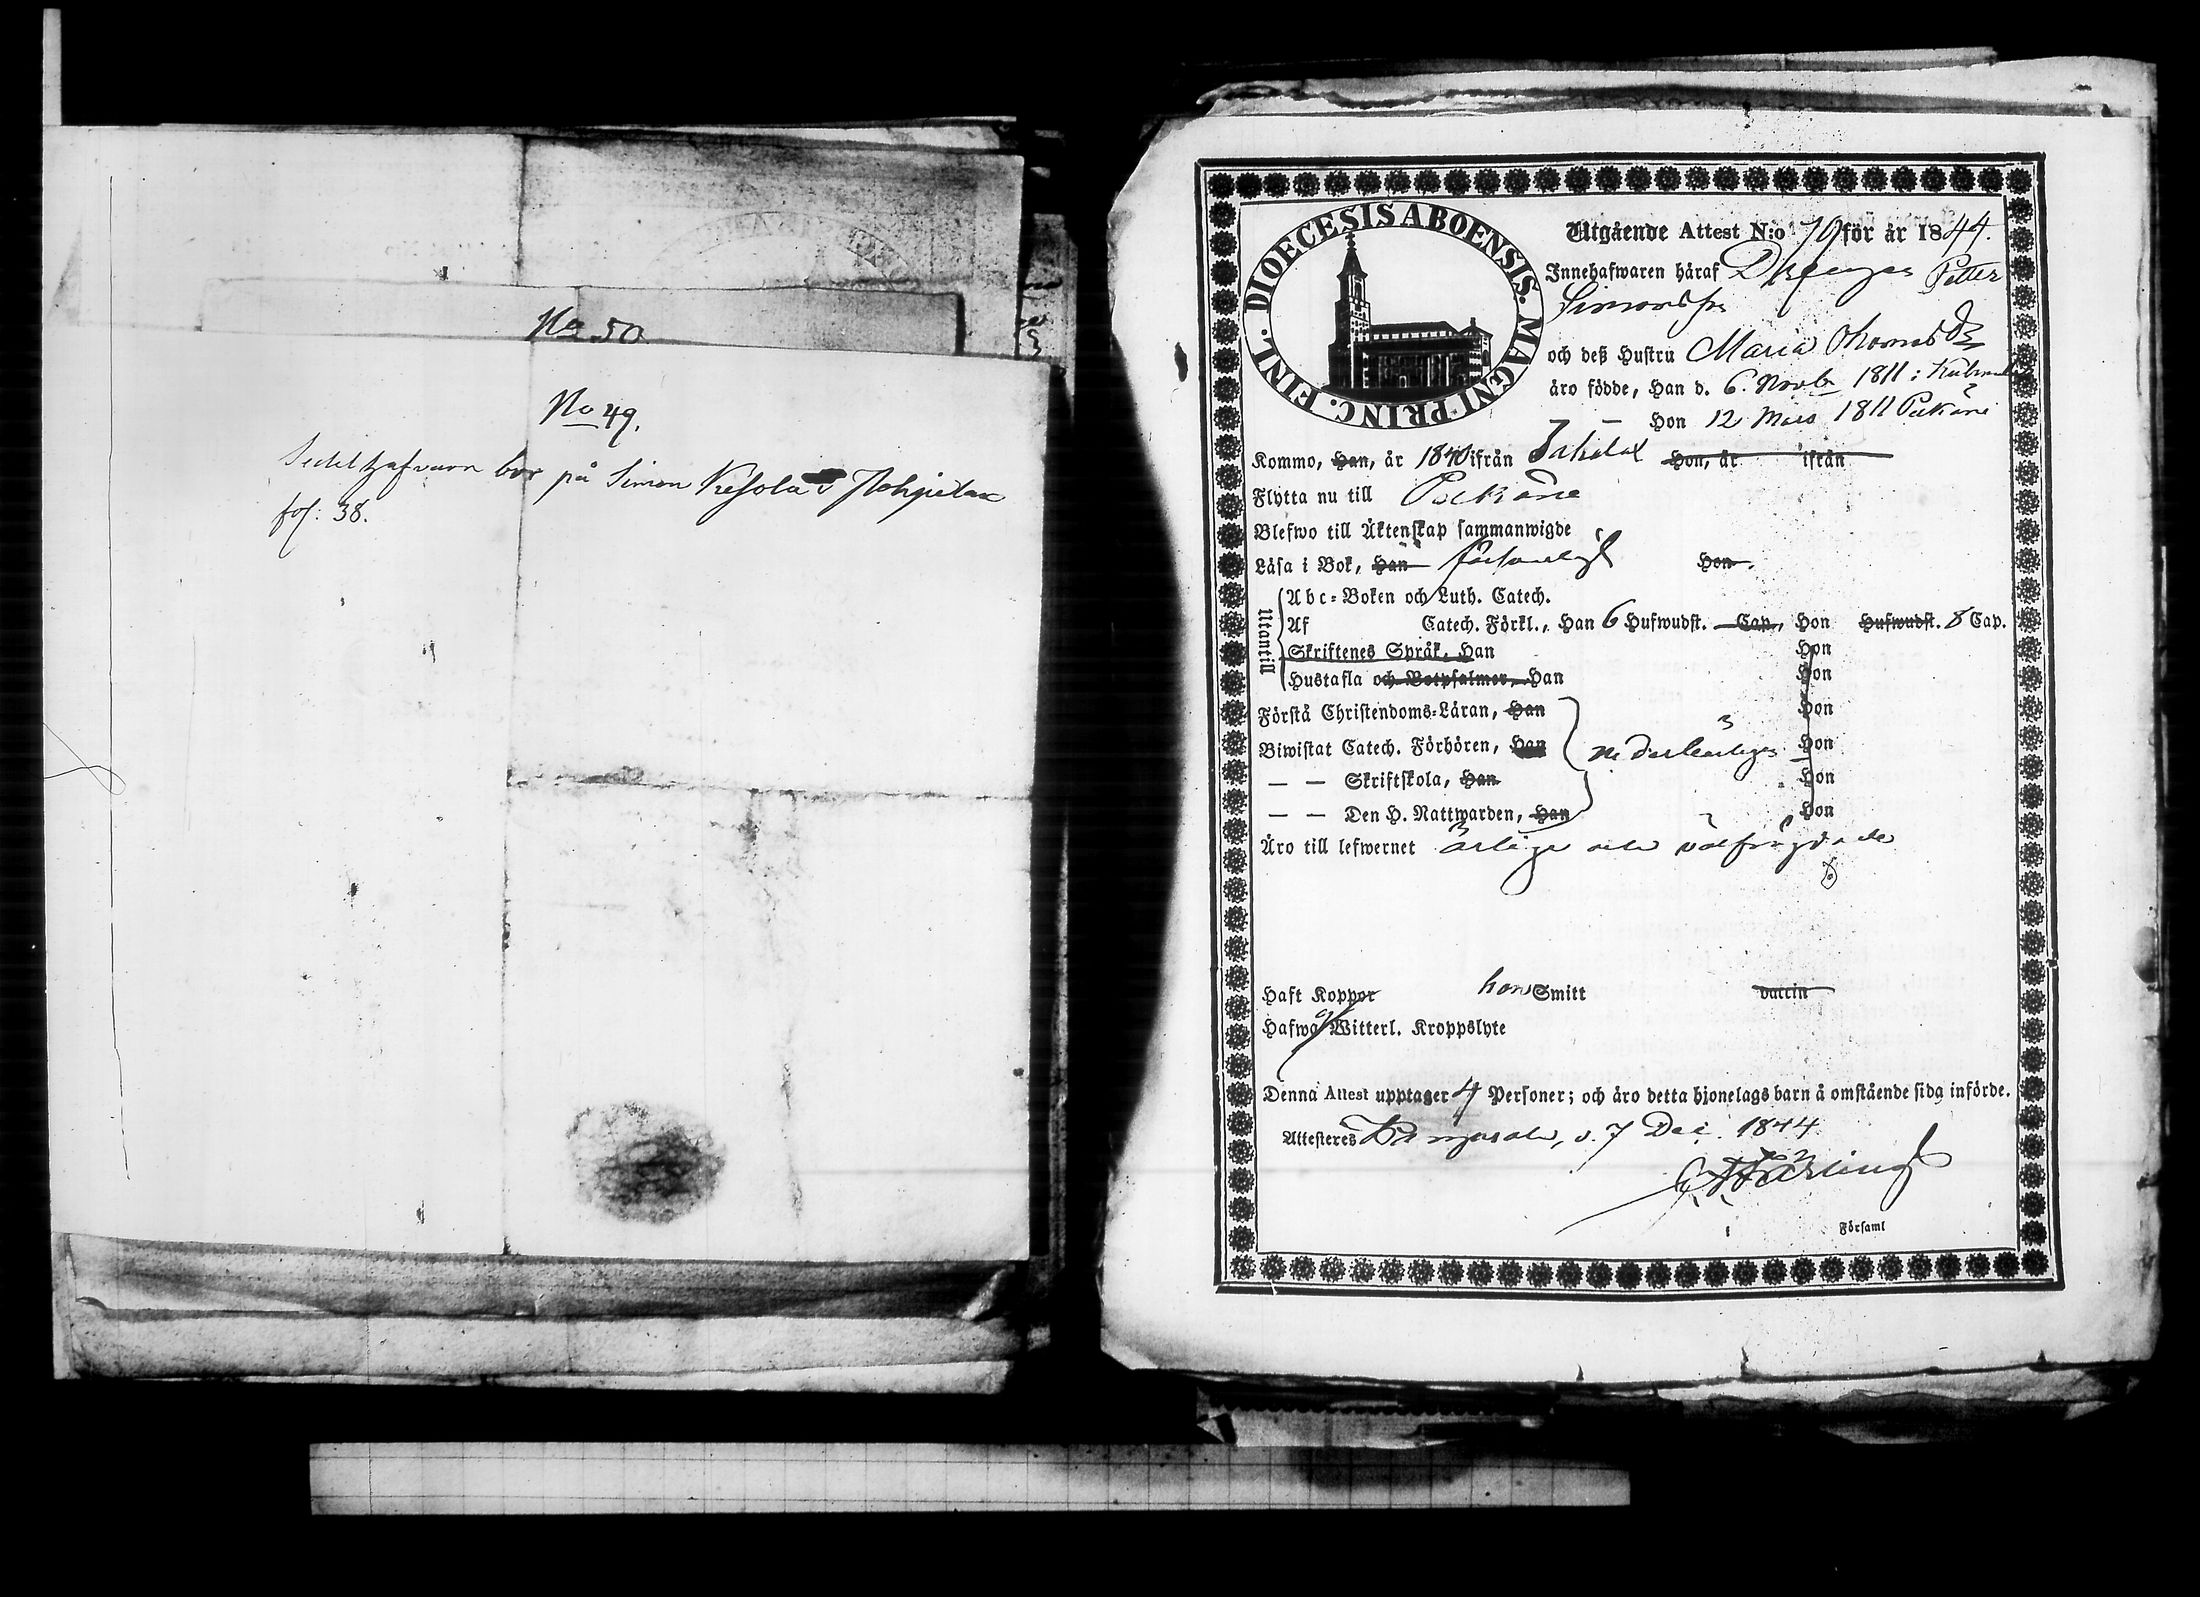 No 50
No 49.
Sedelhafvaren bor på Simon Kesola i Pohjielax
fol: 38.
DIOECESIS ABOENSIS. MAGNI PRINC. FINL.
Utgående Attest N:o 70 för år 1844.
Innehafwaren häraf Drengen Petter
Simonsson
och deß Hustru Maria Thomasdr
äro födde, Han d. 6 Novbr 1811 i
— — Hon 12 Mars 1811 Pälkäne
Kommo, Han, år 1840 ifrån Hon, år ifrån
Flytta nu till Pälkäne
Blefwo till Äktenskap sammanwigde
Läsa i Bok, Han försvarligt Hon
Utantill
Abc-Boken och Luth. Catech.
Af Catech. Förkl., Han 6 Hufwudst. Cap, Hon Hufwudst. 8 Cap.
Skriftenes Språk, Han Hon
Hustafla och Botpsalmer, Han Hon
Förstå Christendoms-Läran, Han Hon
Biwistat Catech. Förhören, Han Hon
— — Skriftskola, Han Hon
— — Den H. Nattwarden, Han Hon
Äro till lefwernet ärlige och välfrägdade
Haft Koppor hon Smitt vaccin
Hafwa ej Witterl. Kroppslyte
Denna Attest upptager 4 Personer; och äro detta hjonelags barn å omstående sida införde.
Attesteres Kangasala, d. 7 Dec. 1844
Församl